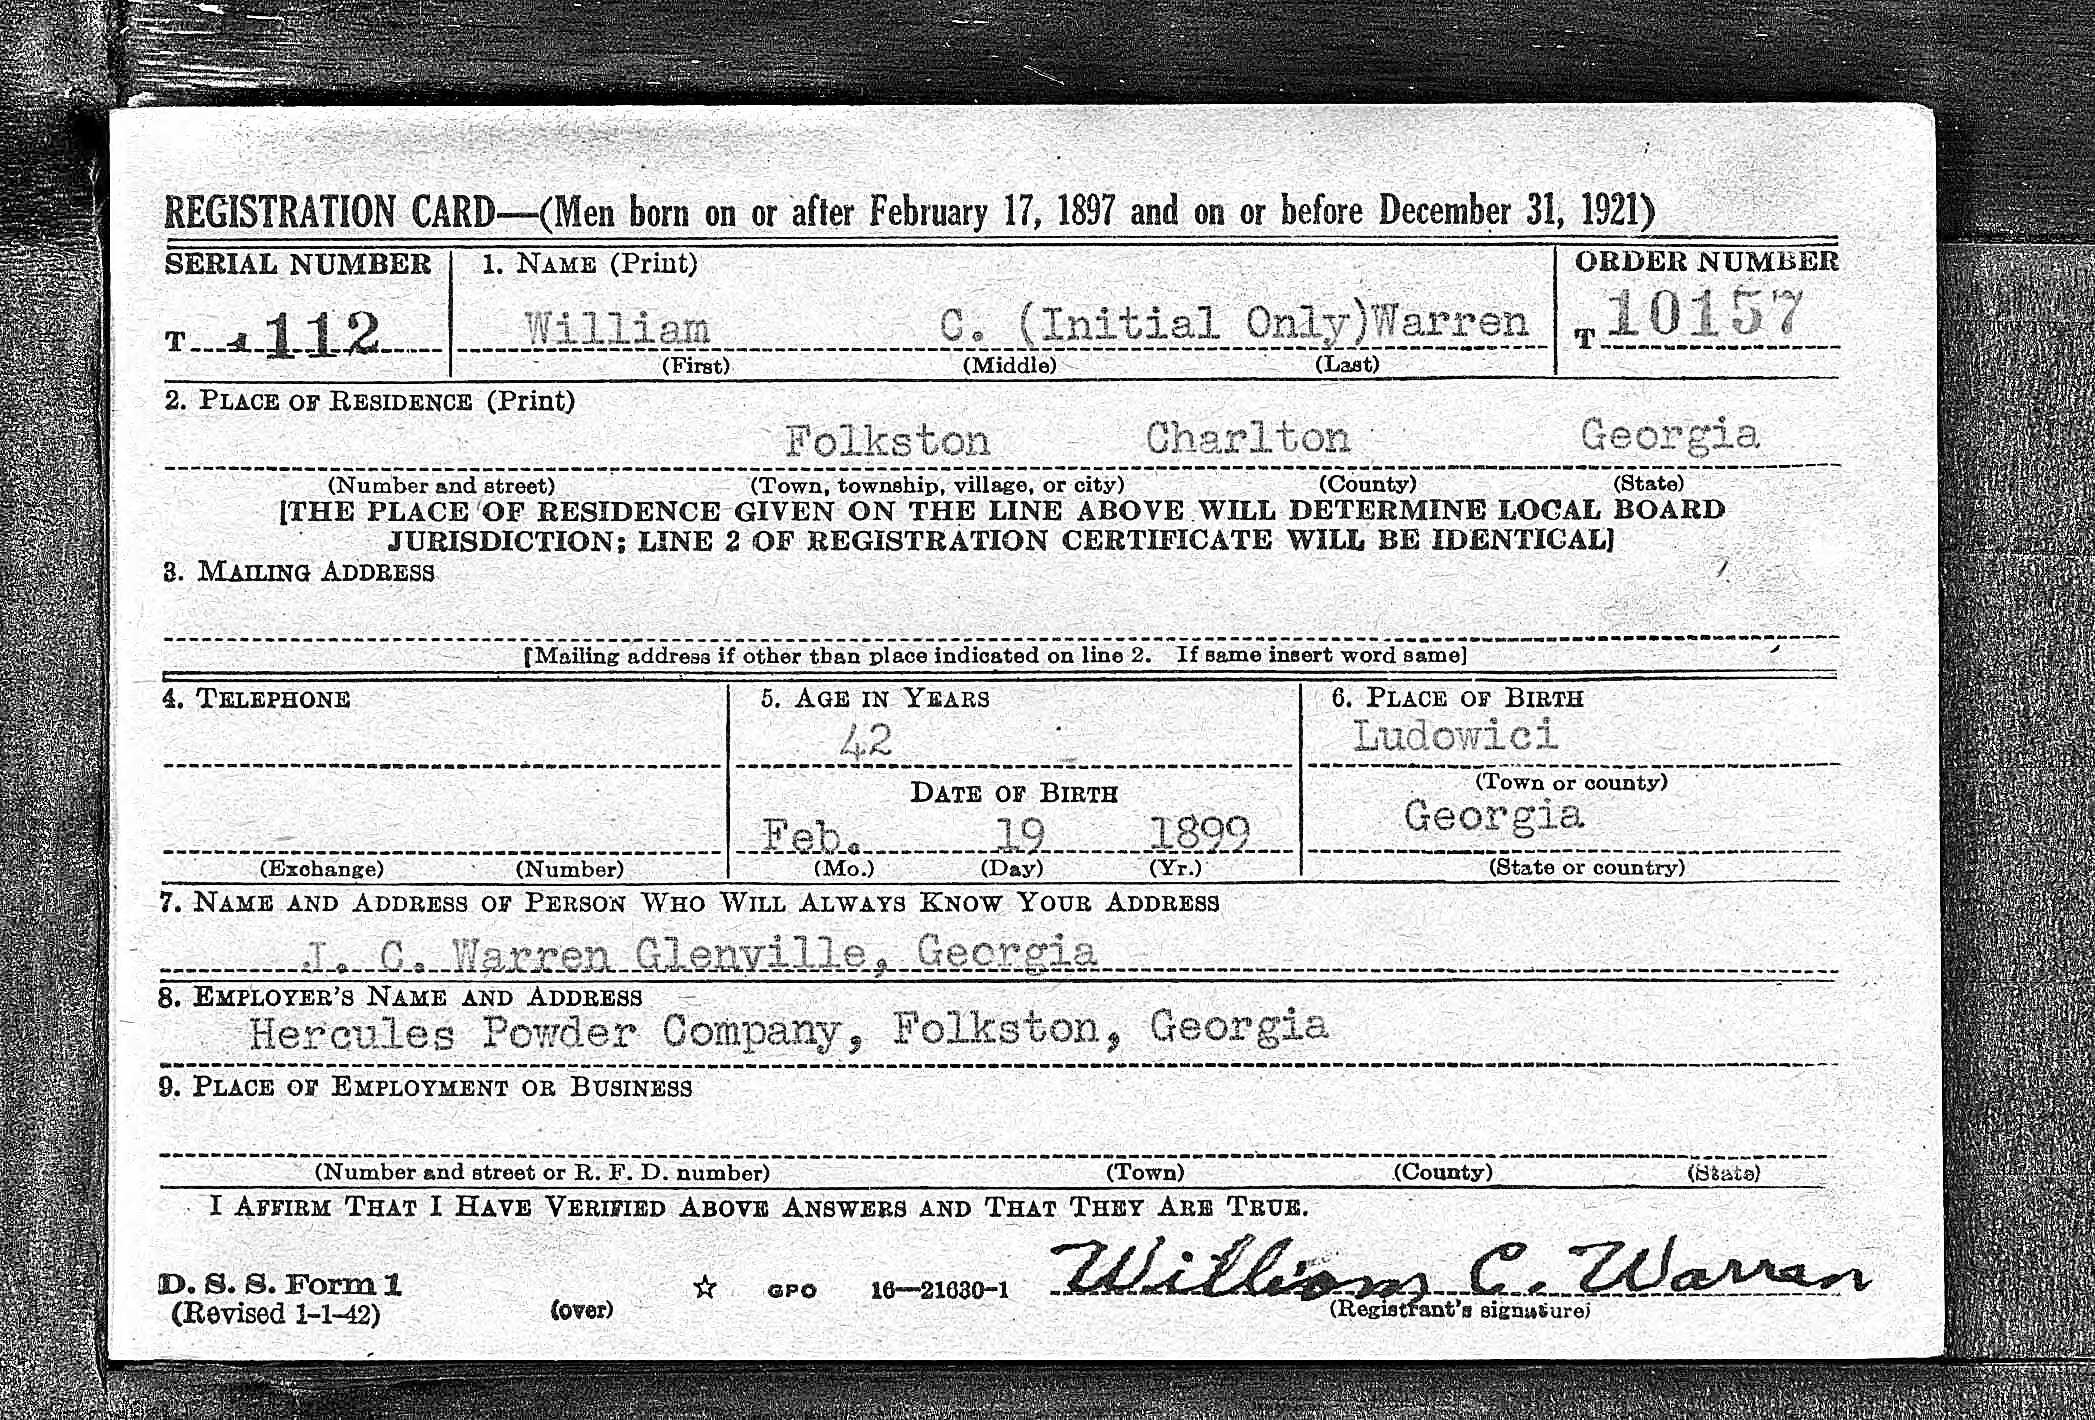 REGISTRATION CARD—(Men born on or after February 17, 1897 and on or before December 31, 1921)
SERIAL NUMBER 1. NAME (Print) ORDER NUMBER
T 1112 William C. (Initial Only) Warren T 10157
(First) (Middle) (Last)
2. PLACE OF RESIDENCE (Print)
Folkston Charlton Georgia
(Number and street) (Town, township, village, or city) (County) (State)
[THE PLACE OF RESIDENCE GIVEN ON THE LINE ABOVE WILL DETERMINE LOCAL BOARD
JURISDICTION; LINE 2 OF REGISTRATION CERTIFICATE WILL BE IDENTICAL]
3. MAILING ADDRESS
[Mailing address if other than place indicated on line 2. If same insert word same]
4. TELEPHONE 5. AGE IN YEARS 6. PLACE OF BIRTH
42 Ludowici
DATE OF BIRTH (Town or county)
Feb. 19 1899 Georgia
(Exchange) (Number) (Mo.) (Day) (Yr.) (State or country)
7. NAME AND ADDRESS OF PERSON WHO WILL ALWAYS KNOW YOUR ADDRESS
J. C. Warren Glenville, Georgia
8. EMPLOYER'S NAME AND ADDRESS
Hercules Powder Company, Folkston, Georgia
9. PLACE OF EMPLOYMENT OR BUSINESS
(Number and street or R. F. D. number) (Town) (County) (State)
I AFFIRM THAT I HAVE VERIFIED ABOVE ANSWERS AND THAT THEY ARE TRUE.
William C. Warren
D. S. S. Form 1 ☆ GPO 16—21630-1
(Revised 1-1-42) (over) (Registrant's signature)